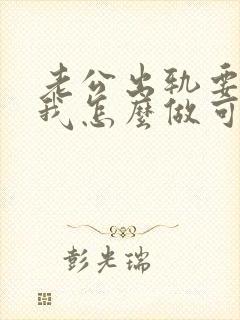 老公出轨要
我怎麼做可
彭光瑞